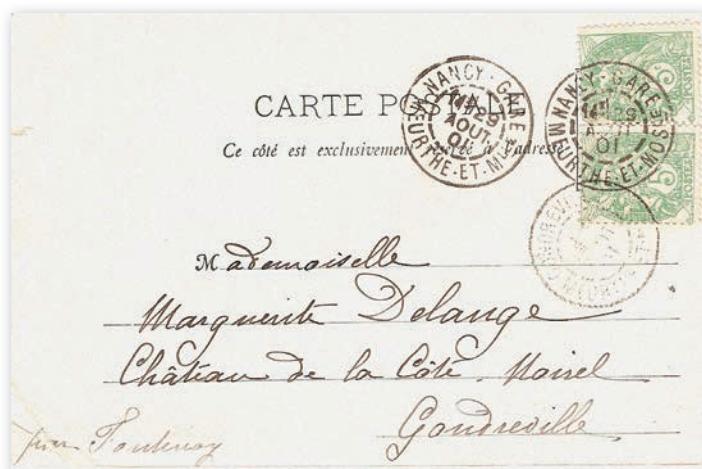 CARTE POSTALE
Ce côté est exclusivement réservé à l'adresse
NANCY - GARE
14E/29
AOUT
01
MEURTHE-ET-MOSELLE
NANCY - GARE
29
AOUT
01
MEURTHE-ET-MOSELLE
5
POSTES
5
POSTES
Mademoiselle
Marguerite Delange
Château de la Côté
Gondreville
par Fontenoy